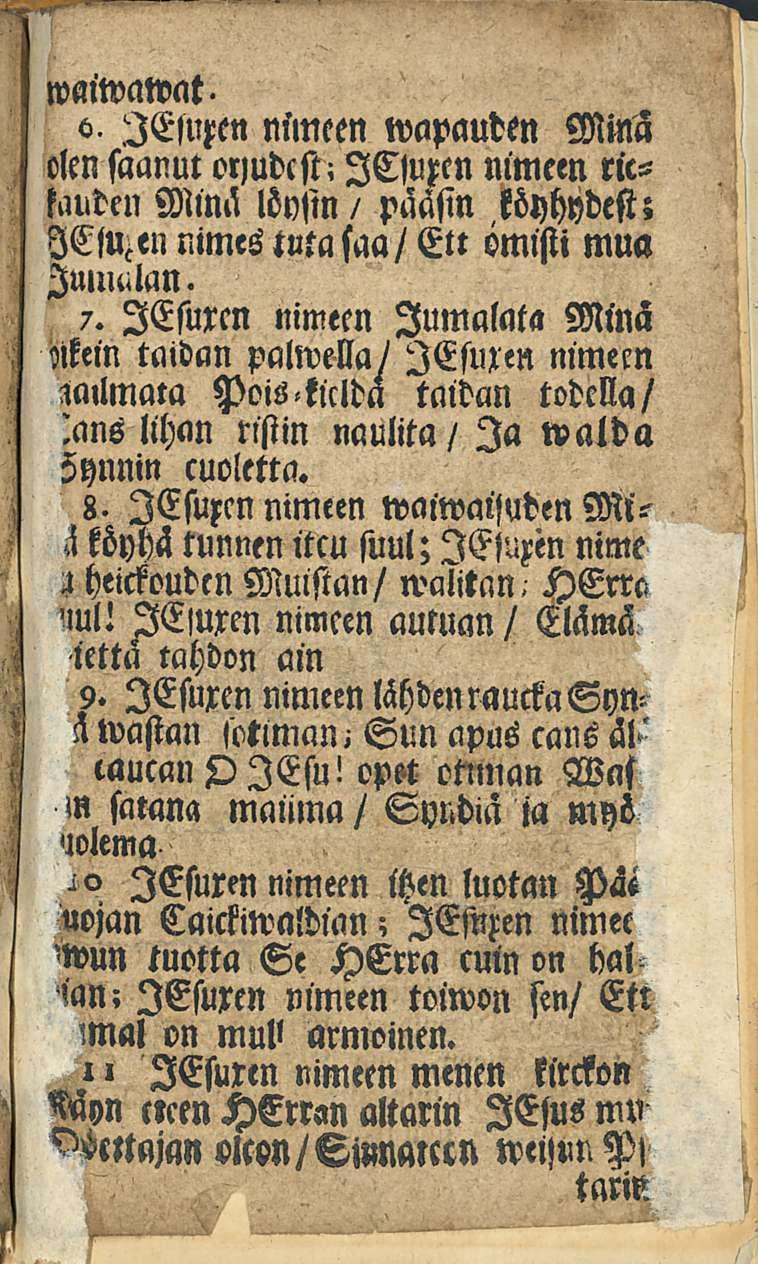 waiwawat.
6. JEsuxen nimeen wapauden Minä
olen saanut orjudest; JEsuxen nimeen ric⸗
kauden Minä löysin / pääsin köyhydest;
JEsuxen nimes tuta saa / Ett omisti mua
Jumalan.
7. JEsuxen nimeen Jumalata Minä
oikein taidan palwella / JEsuxen nimeen
aailmata Pois⸗kieldä taidan todella /
Cans lihan ristin naulita / Ja walda
Synnin cuoletta.
8. JEsuxen nimeen waiwaisuden Mi⸗
ä köyhä tunnen itcu suul; JEsuxen nime
heickouden Muistan / walitan; HErra
uul! JEsuxen nimeen autuan / Elämä
iettä tahdon ain
9. JEsuxen nimeen lähden raucka Syn⸗
ä wastan sotiman; Sun apus cans äl
caucan O JEsu! opet ottman Was
in satana mailma / Syndiä ja myö
uolema.
10 JEsuxen nimeen itzen luotan Pää
uojan Caickiwaldian; JEsuxen nimee
wun tuotta Se HErra cuin on hal⸗
ian; JEsuxen nimeen toiwon sen / Ett
umal on mull armoinen.
11 JEsuxen nimeen menen kirckon
Käyn eteen HErran altarin JEsus mu
Opettajan olcon / Siunateen weisun Ps
tarin